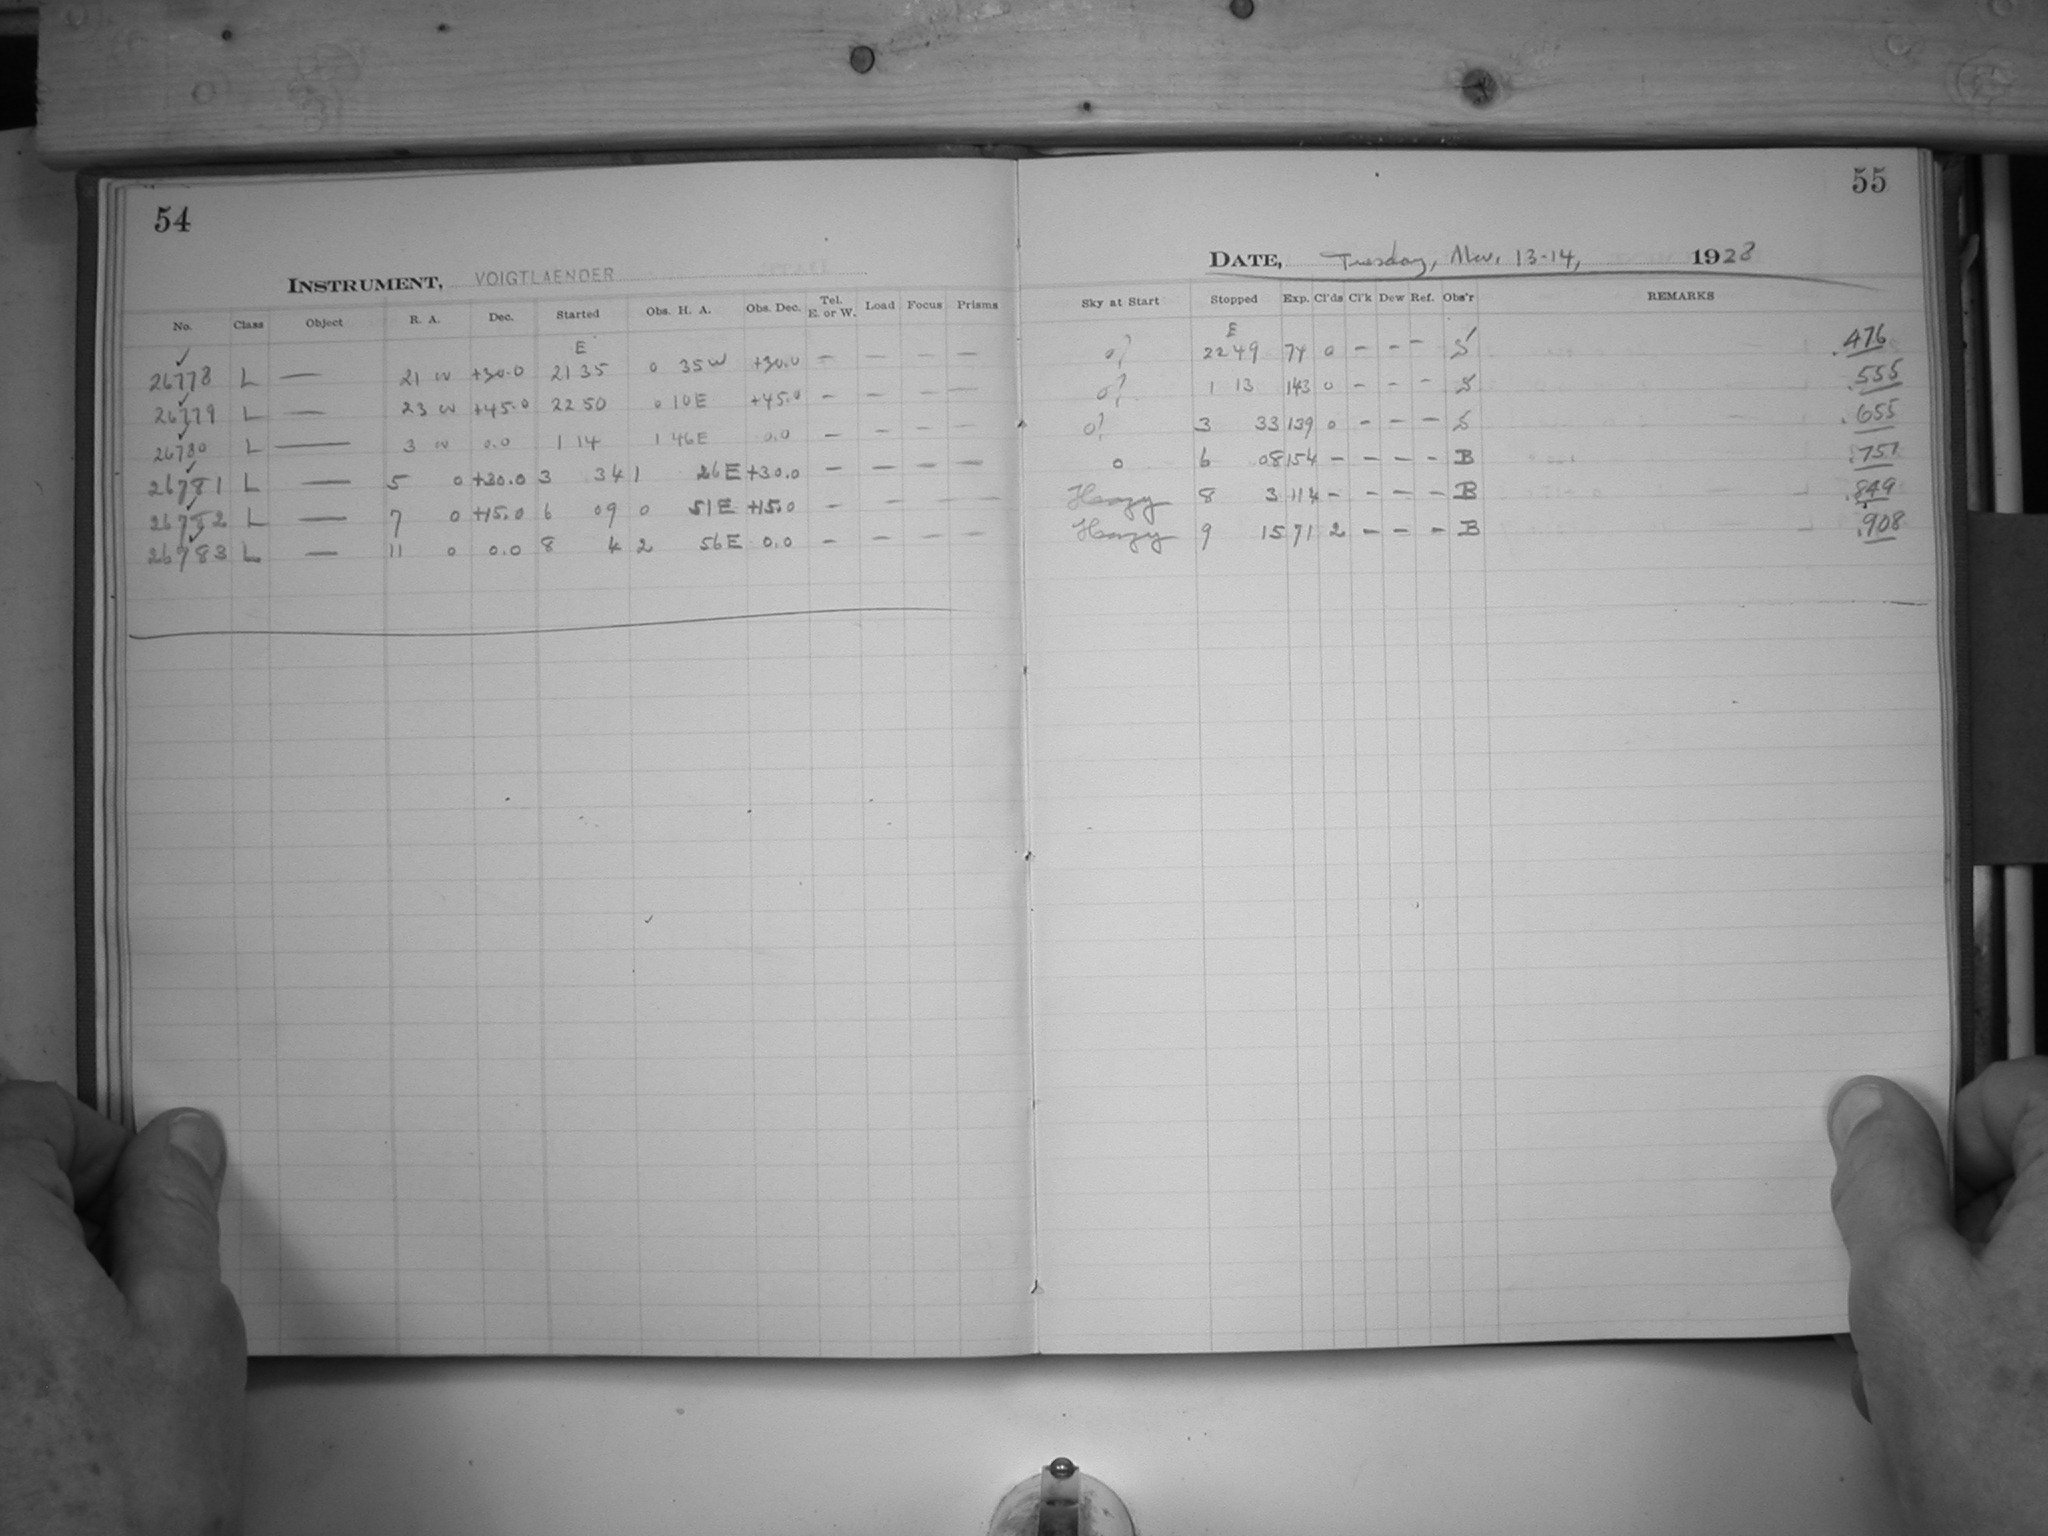 54
INSTRUMENT, VOIGTLAENDER
No. Class Object R. A. Dec. Started Obs. H. A. Obs. Dec. Tel. E. or W. Load Focus Prisms
E
26778 L — 21 w +30.0 21 35 0 35 W +30.0 — — — —
26779 L — 23 w +45.0 22 50 0 10 E +45.0 — — — —
26780 L — 3 w 0.0 1 14 1 46 E 0.0 — — — —
26781 L — 5 0 +30.0 3 34 1 26 E +30.0 — — — —
26782 L — 7 0 +15.0 6 09 0 51 E +15.0 — — — —
26783 L — 11 0 0.0 8 4 2 56 E 0.0 — — — —
55
DATE, Tuesday, Nov. 13-14, 1928
Sky at Start Stopped Exp. Cl'ds Cl'k Dew Ref. Obs'r REMARKS
E
0? 22 49 74 0 — — — S .476
0? 1 13 143 0 — — — S .555
0? 3 33 139 0 — — — S .655
0 6 08 154 — — — — B .757
Hazy 8 3 114 — — — — B .849
Hazy 9 15 71 2 — — — B .908